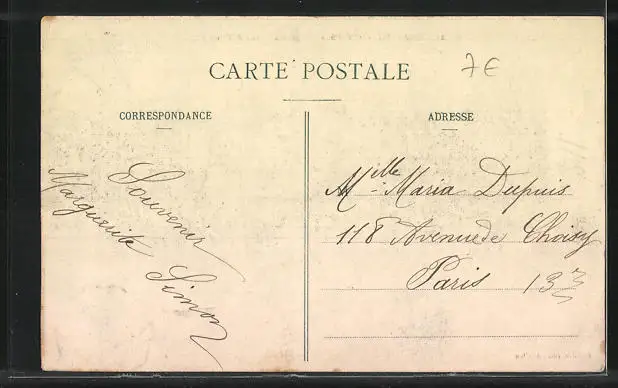 CARTE POSTALE
7€
CORRESPONDANCE
Souvenir
Marguerite Simon
ADRESSE
Mlle Maria Dupuis
118 Avenue de Choisy
Paris 13e